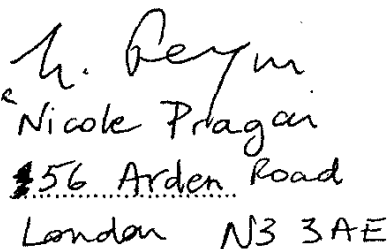 Nicole Pragai
56 Arden Road
London N3 3AE